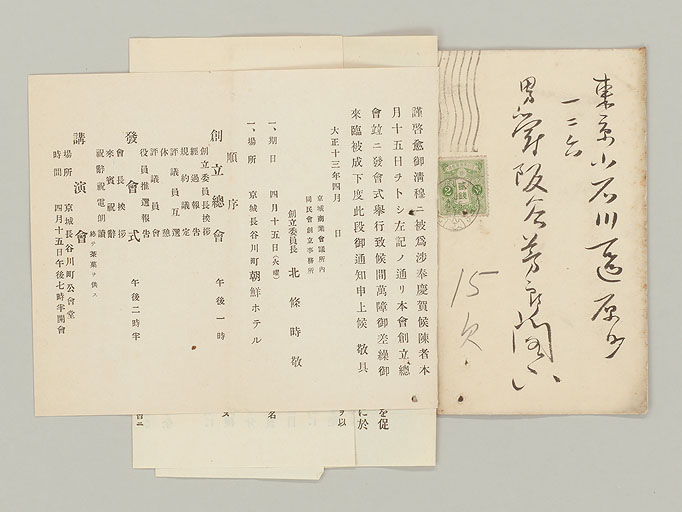 東京小石川區原町
一二六
男爵阪谷芳郎閣下
15
貳錢
謹啓愈御淸穆ニ被爲涉奉慶賀候陳者本
月十五日ヲトシ左記ノ通リ本會創立總
會竝ニ發會式擧行致候間萬障御差繰御
來臨被成下度此段御通知申上候 敬具
大正十三年四月 日
京城商業會議所內
國民會創立事務所
創立委員長 北條時敬
一、期日 四月十五日(火曜)
一、場所 京城長谷川町朝鮮ホテル
順序
創立總會 午後一時
創立委員長挨拶
經過報告
規約議定
評議員互選
休憩
評議員會
役員推選報告
發會式 午後二時半
會長挨拶
來賓祝辭
祝辭祝電朗讀
終テ茶菓ヲ供ス
講演會
場所 京城長谷川町公會堂
時間 四月十五日午後七時半開會
を促
に於
以
名